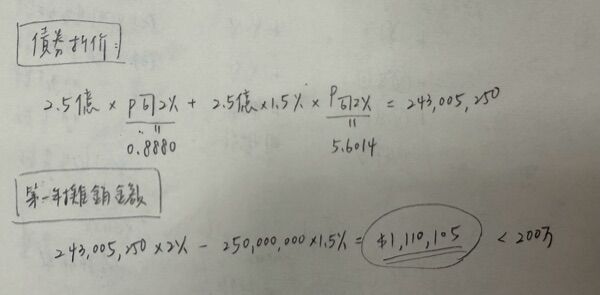 債券折价:
2.5億 × P6┐2% + 2.5億×1.5% × P6┐2% = 243,005,250
0.8880 5.6014
第一年攤銷金額
243,005,250 ×2% - 250,000,000 ×1.5% = $1,110,105 < 200万